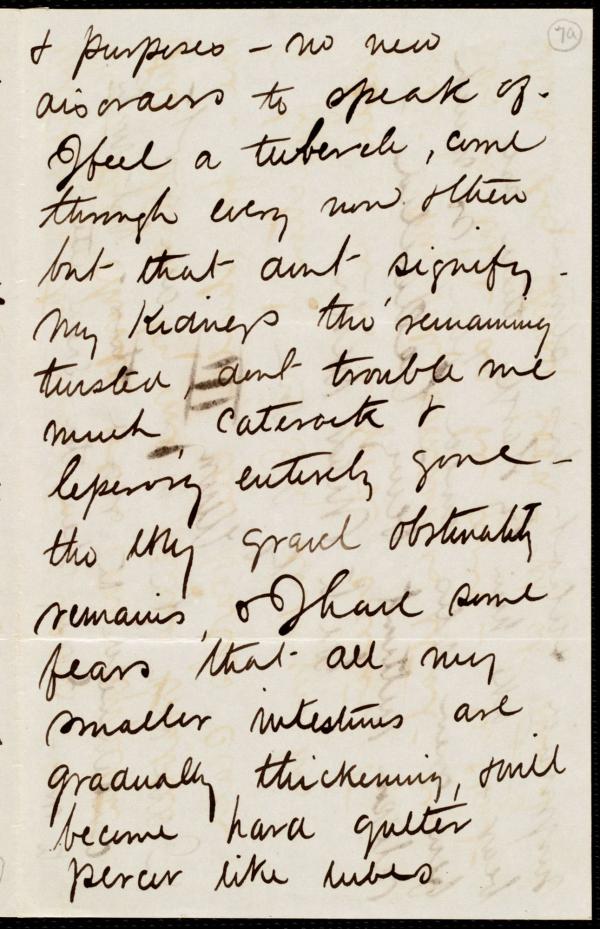 7a
& purposes - no new
disorders to speak of.
I feel a tubercle, come
through every now & then
but that aint signify -
My Kidneys tho' remaining
twisted, dont trouble me
much cateract &
leperosy entirely gone -
tho the gravel obstinately
remains, & I have some
fears that all my
smaller intestines are
gradually thickening, & will
become hard gutter
percer like tubes